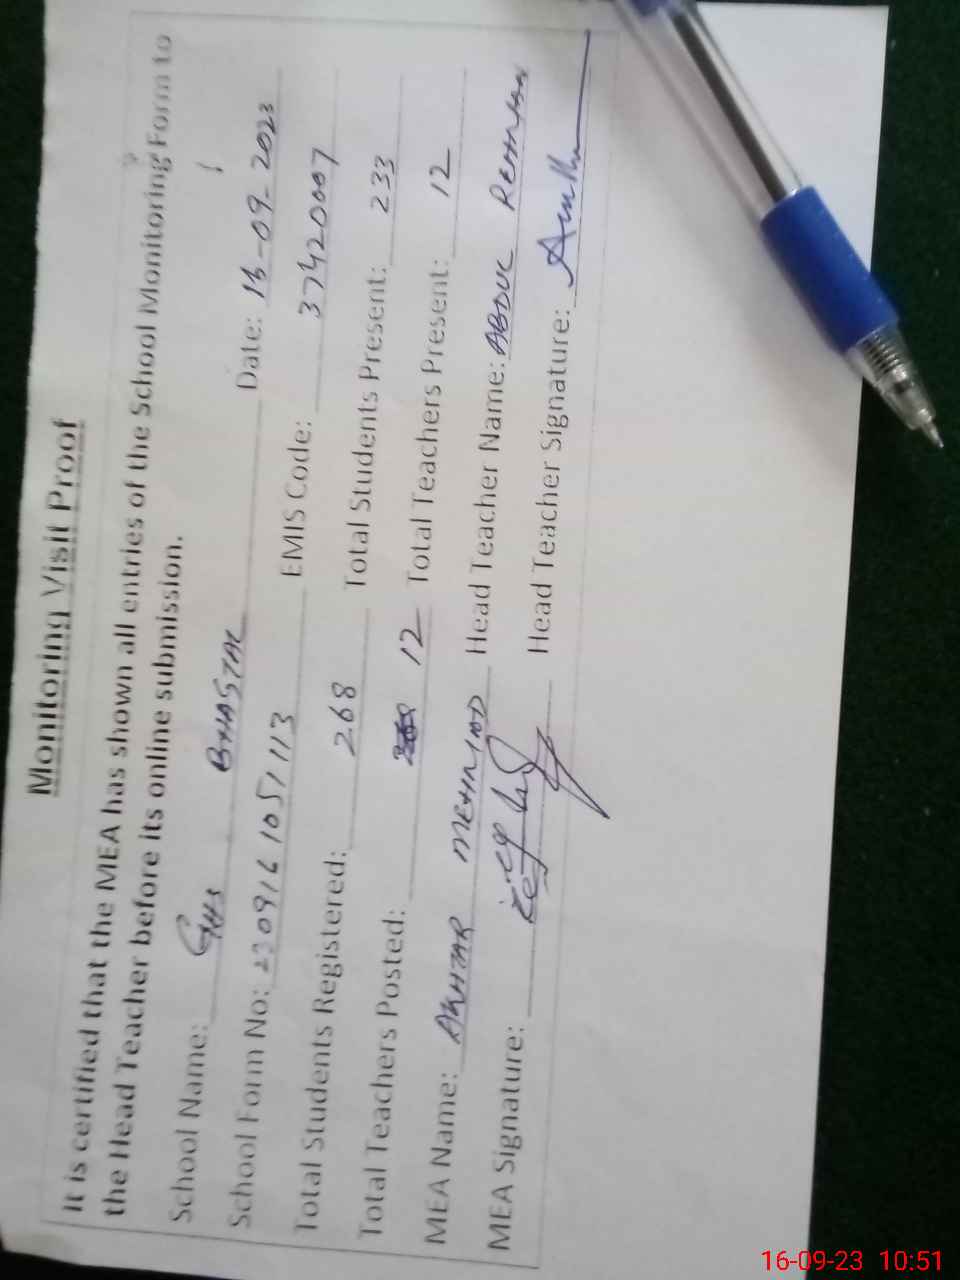 Monitoring Visit Proof
It is certified that the MEA has shown all entries of the School Monitoring Form to
the Head Teacher before its online submission.
School Name: GHS BHAGTAL Date: 16-09-2023
School Form No: 230916 1051113 EMIS Code: 37420007
Total Students Registered: 268 Total Students Present: 233
Total Teachers Posted: 12 Total Teachers Present: 12
MEA Name: AKHTAR MEHMOOD Head Teacher Name: ABDUL REHMAN
MEA Signature: Head Teacher Signature:
16-09-23 10:51